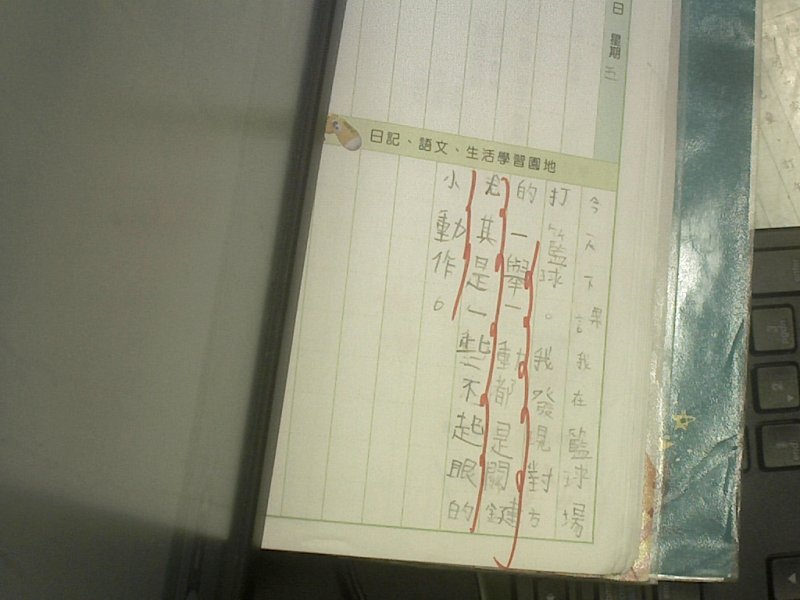 日 星期五
日記、語文、生活學習園地
今天下課我在籃球場
打籃球。我發現對方
的一舉一動都是關鍵
尤其是一些不起眼的
小動作。